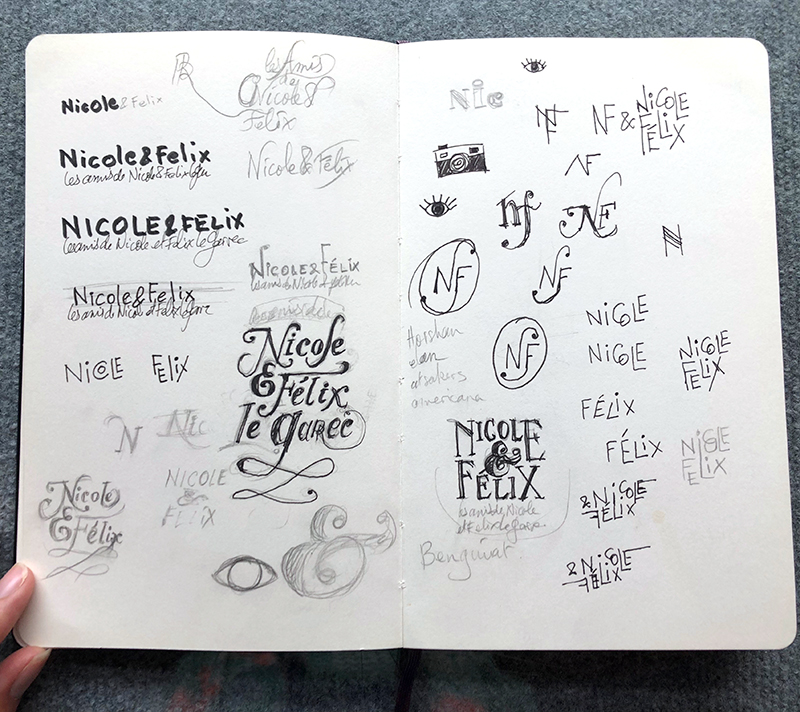 Nicole & Felix
les Amis
de
Nicole &
Felix
Nicole&Felix
les amis de Nicole & Felix
Nicole & Felix
NICOLE&FELIX
les amis de Nicole et Felix le Garrec
NICOLE & FÉLIX
les amis de Nicole et
Nicole&Felix
les amis de Nicole et Felix
les amis de
NiCOLE FELiX
Nicole
& Félix
le garec
N Nic
NICOLE
&
FELIX
Nicole
& Félix
Nic
NF
NF & NiCOLE
FÉLiX
NF
nf
NF
N
NF
NF
NiCOLE
Horshan
elan
atsakers
americana
NF
NiCOLE
NiCOLE
FÉLiX
FÉLiX
FÉLiX
NiCOLE
FELiX
NICOLE
&
FÉLIX
les amis de Nicole
et Felix le Garrec
& NiCOLE
FÉLiX
Benguiat.
& NiCOLE
FÉLiX